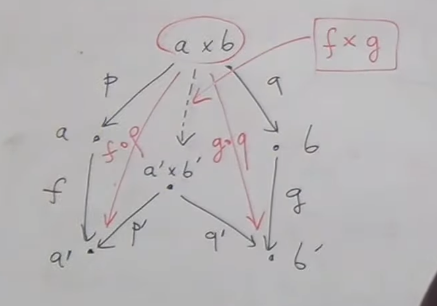 a × b
f × g
p
q
a
f∘p
a' × b'
g∘q
b
f
g
p'
q'
a'
b'